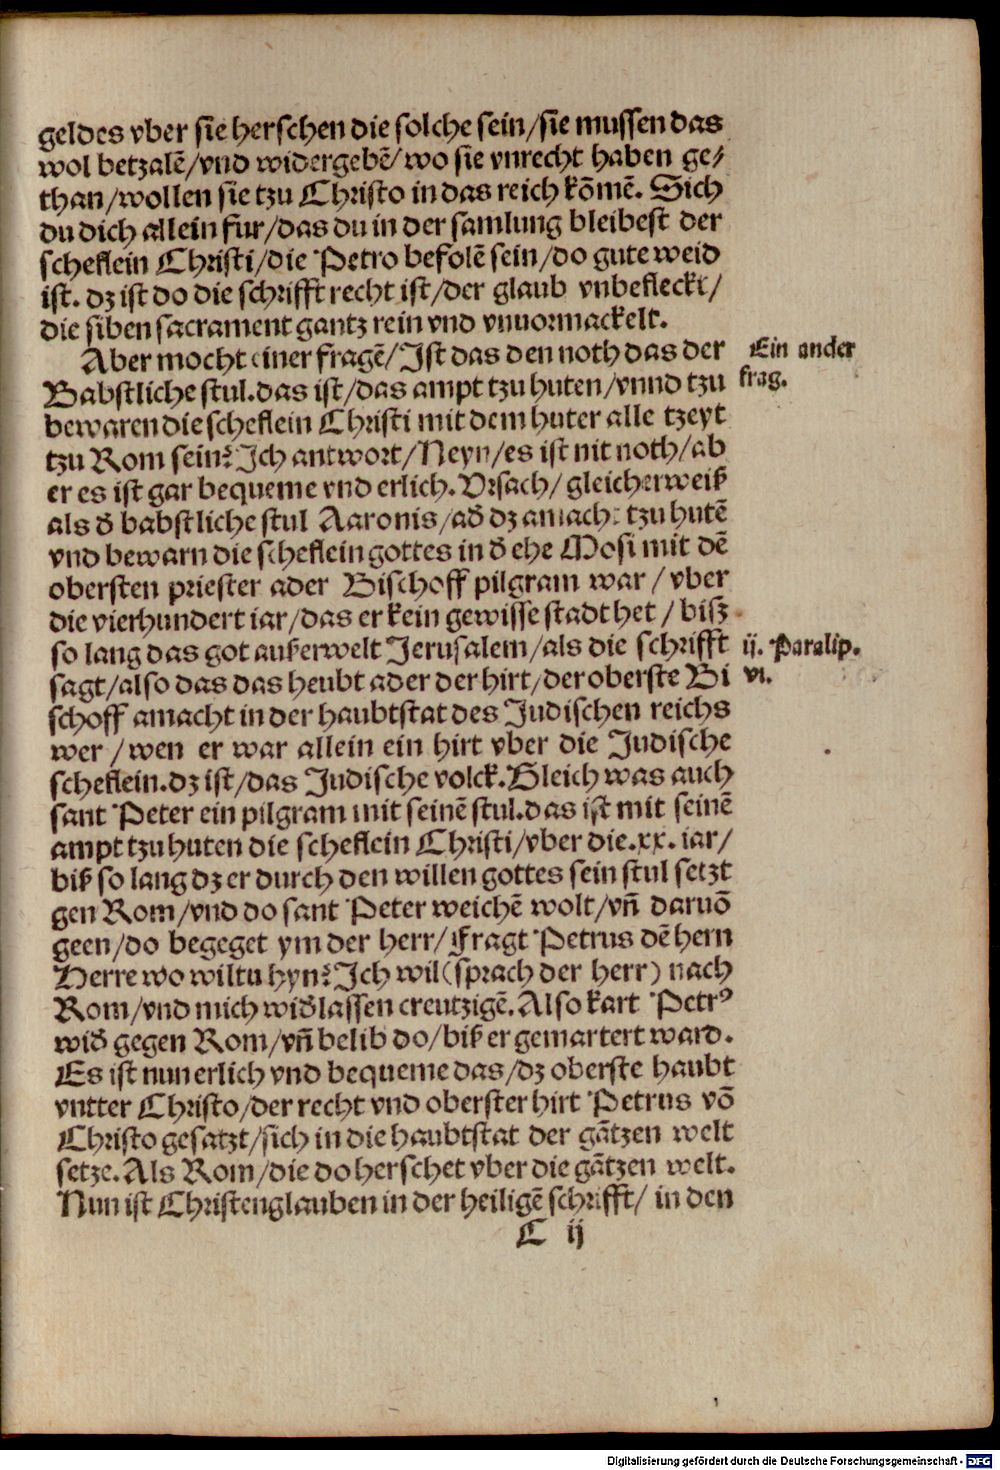 geldes vber sie herschen die solche sein/sie mussen das
wol betzalē/vnd widergebē/wo sie vnrecht haben ge⸗
than/wollen sie tzu Christo in das reich kōmē. Sich
du dich allein fur/das du in der samlung bleibest der
scheflein Christi/die Petro befolē sein/do gute weid
ist. dz ist do die schrifft recht ist/der glaub vnbefleckt/
die siben sacrament gantz rein vnd vnuormackelt.
Aber mocht einer fragē/Ist das den noth das der
Babstliche stul.das ist/das ampt tzu huten/vnnd tzu
bewaren die scheflein Christi mit dem huter alle tzeyt
tzu Rom sein? Ich antwort/Neyn/es ist nit noth/ab
er es ist gar bequeme vnd erlich. Vrsach/gleicherweiß
als d̄ babstliche stul Aaronis/ad̄ dz amacht tzu hutē
vnd bewarn die scheflein gottes in d̄ ehe Mosi mit dē
obersten priester ader Bischoff pilgram war/vber
die vierhundert iar/das er kein gewisse stadt het/bisz
so lang das got außerwelt Jerusalem/als die schrifft
sagt/also das das heubt ader der hirt/der oberste Bi
schoff amacht in der haubtstat des Judischen reichs
wer/wen er war allein ein hirt vber die Judische
scheflein.dz ist/das Judische volck. Gleich was auch
sant Peter ein pilgram mit seinē stul.das ist mit seinē
ampt tzu huten die scheflein Christi/vber die.xx.iar/
biß so lang dz er durch den willen gottes sein stul setzt
gen Rom/vnd do sant Peter weichē wolt/vn̄ daruō
geen/do begeget ym der herr/Fragt Petrus dē hern
Herre wo wiltu hyn? Ich wil (sprach der herr) nach
Rom/vnd mich wid̄ lassen creutzigē. Also kart Petrꝰ
wid̄ gegen Rom/vn̄ belib do/biß er gemartert ward.
Es ist nun erlich vnd bequeme das/dz oberste haubt
vntter Christo/der recht vnd oberster hirt Petrus vō
Christo gesatzt/sich in die haubtstat der gātzen welt
setze. Als Rom/die do herschet vber die gātzen welt.
Nun ist Christenglauben in der heiligē schrifft/in den
C ij
Ein ander
frag.
ij. Paralip.
vi.
Digitalisierung gefördert durch die Deutsche Forschungsgemeinschaft - DFG